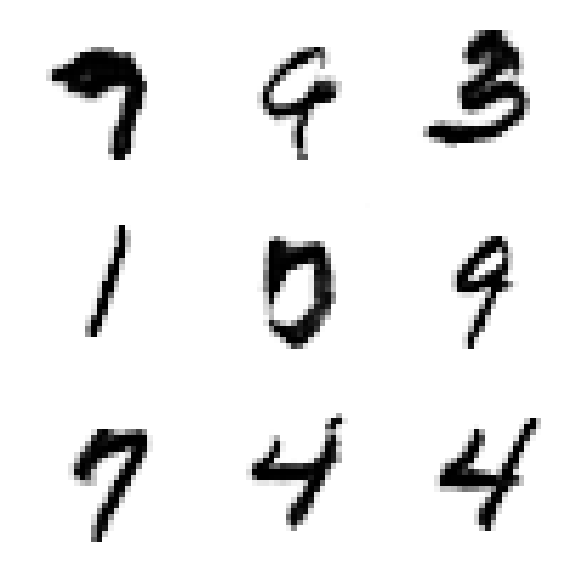 7 9 3
1 0 9
7 4 4